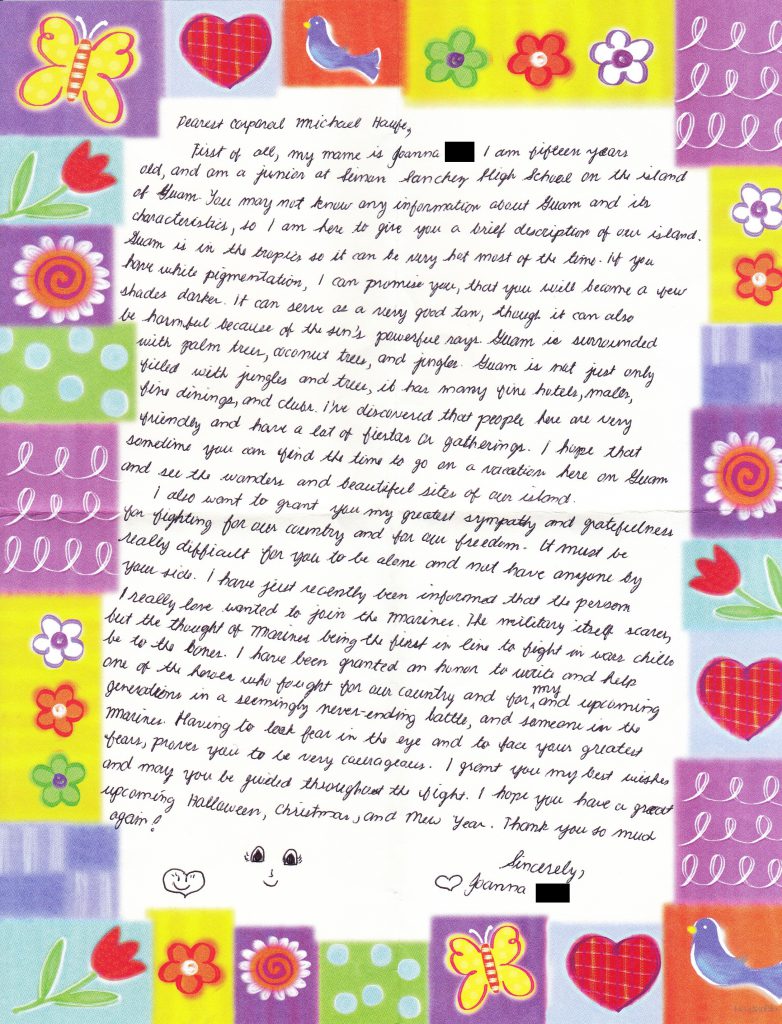 Dearest Corporal Michael Haufe,
First of all, my name is Joanna I am fifteen years
old, and am a junior at Simon Sanchez High School on the island
of Guam. You may not know any information about Guam and its
characteristics, so I am here to give you a brief description of our island.
Guam is in the tropics so it can be very hot most of the time. If you
have white pigmentation, I can promise you, that you will become a few
shades darker. It can serve as a very good tan, though it can also
be harmful because of the sun's powerful rays. Guam is surrounded
with palm trees, coconut trees, and jungles. Guam is not just only
filled with jungles and trees, it has many fine hotels, malls,
fine dinings, and clubs. I've discovered that people here are very
friendly and have a lot of fiestas or gatherings. I hope that
sometime you can find the time to go on a vacation here on Guam
and see the wonders and beautiful sites of our island.
I also want to grant you my greatest sympathy and gratefulness
for fighting for our country and for our freedom. It must be
really difficult for you to be alone and not have anyone by
your side. I have just recently been informed that the person
I really love wanted to join the Marines. The military itself scares,
but the thought of Marines being the first in line to fight in wars chills
be to the bones. I have been granted an honor to write and help
one of the heroes who fought for our country and for my, and upcoming
generations in a seemingly never-ending battle, and someone in the
Marines. Having to look fear in the eye and to face your greatest
fears, proves you to be very courageous. I grant you my best wishes
and may you be guided throughout the fight. I hope you have a great
upcoming Halloween, Christmas, and New Year. Thank you so much
again!
Sincerely,
Joanna